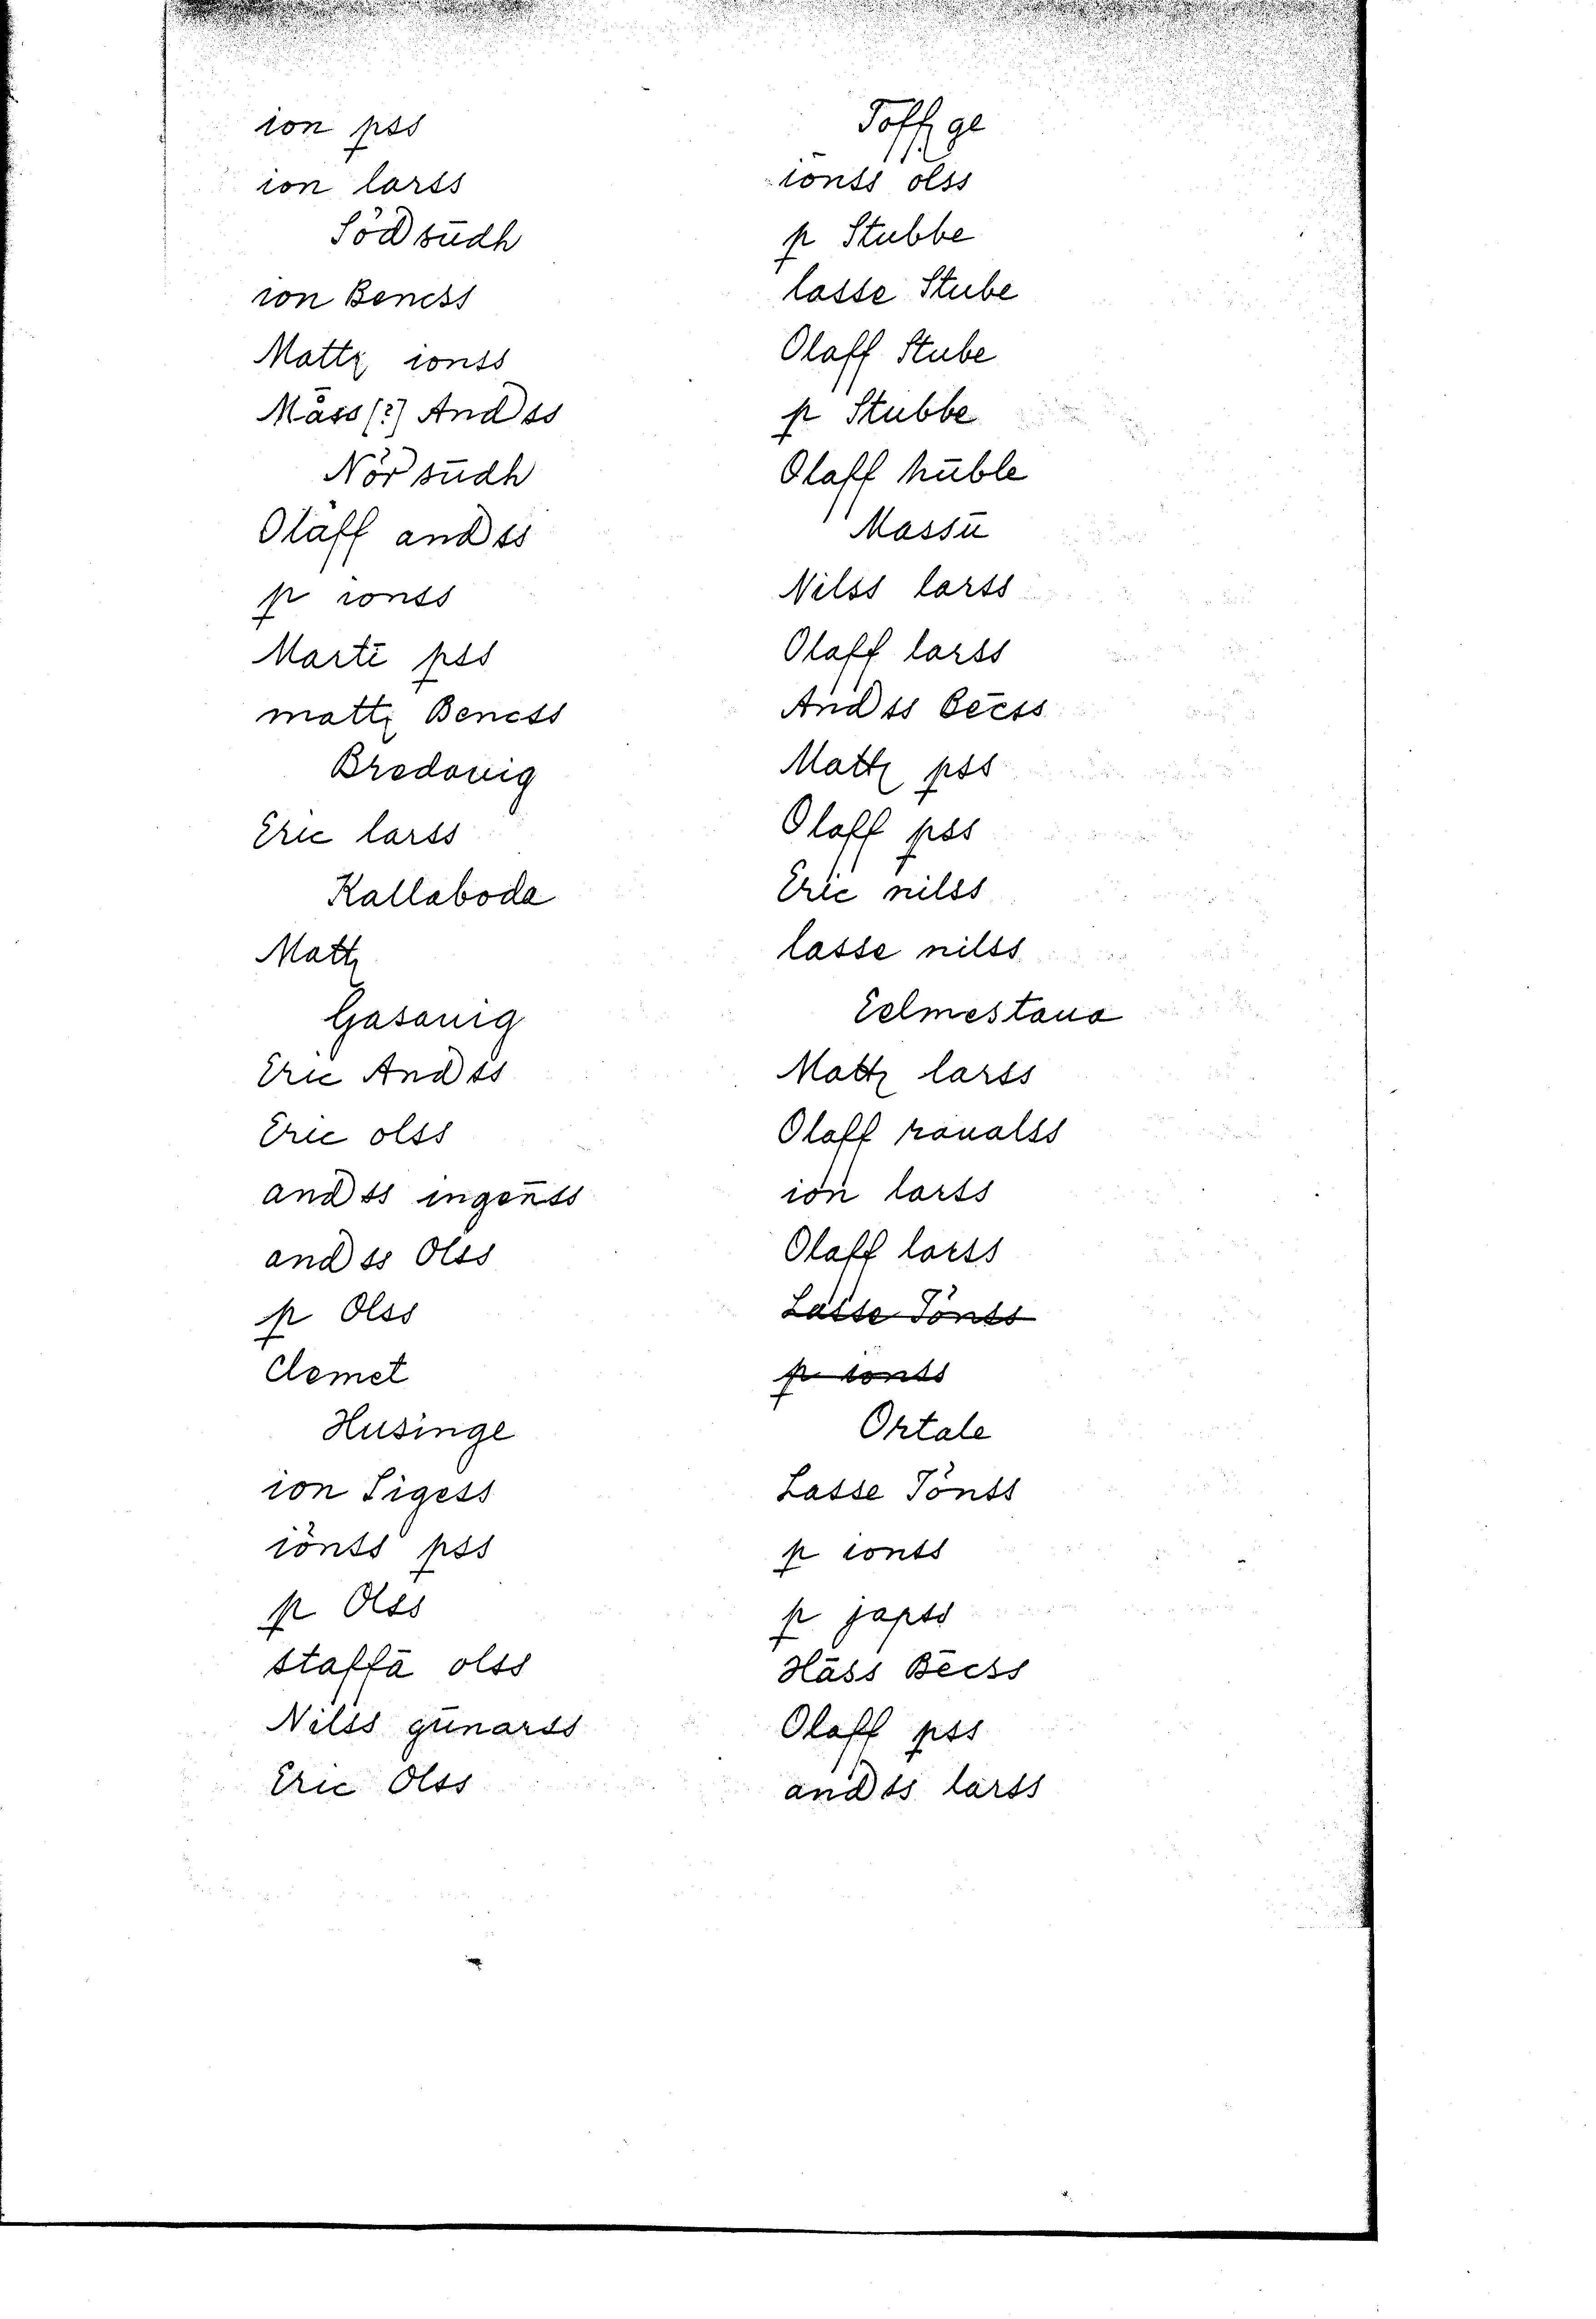 ion pss
ion larss
Söd sūdh
ion Bencss
Mattz ionss
Måss [?] And ss
Nör sūdh
Olaff and ss
p ionss
Martī pss
mattz Bencss
Bredauig
Eric larss
Kallaboda
Mattz
Gasauig
Eric And ss
Eric olss
and ss ingēnss
and ss Olss
p Olss
Clemet
Husinge
ion Sigess
iönss pss
p Olss
staffā olss
Nilss gūnarss
Eric Olss
Toffz ge
iönss olss
p Stubbe
lasse Stube
Olaff Stube
p Stubbe
Olaff hūble
Massū
Nilss larss
Olaff larss
And ss Bēcss
Mattz pss
Olaff pss
Eric nilss
lasse nilss
Eelmestaua
Mattz larss
Olaff raualss
ion larss
Olaff larss
Lasse Jönss
p ionss
Ortale
Lasse Jönss
p ionss
p japss
Hāss Bēcss
Olaff pss
and ss larss